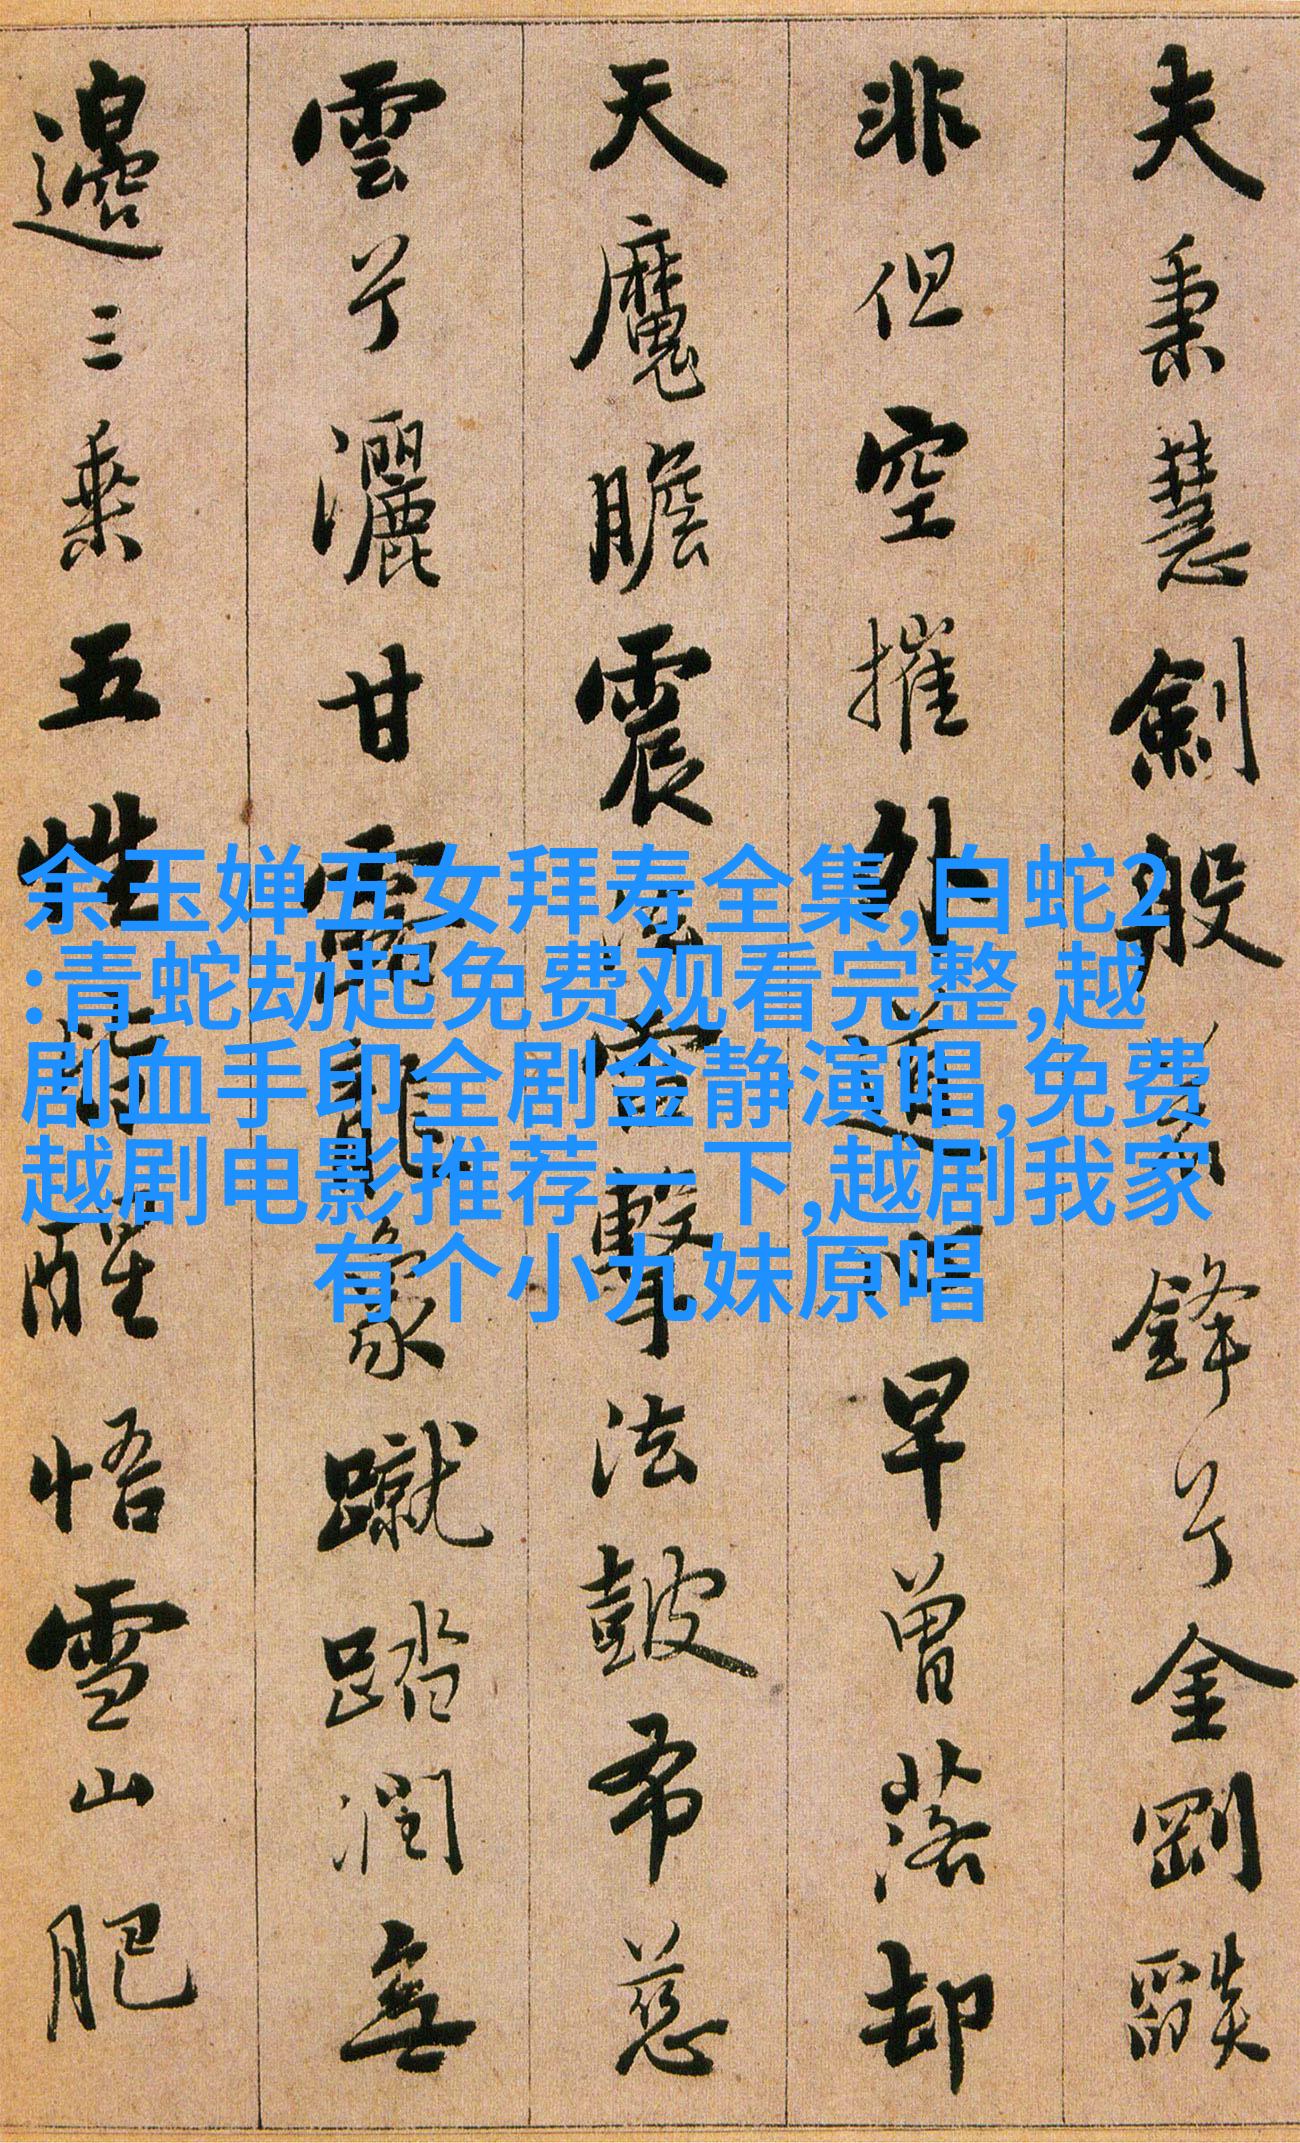 夫秉慧劍般若鋒兮金剛燄
非但空摧外道心早曾落却
天魔膽震法雷擊法皷布慈
雲兮灑甘露龍象蹴踏潤無
邊三乘五性皆醒悟雪山肥
余玉婵五女拜寿全集,白蛇2
:青蛇劫起免费观看完整,越
剧血手印全剧金静演唱,免费
越剧电影推荐一下,越剧我家
有个小九妹原唱